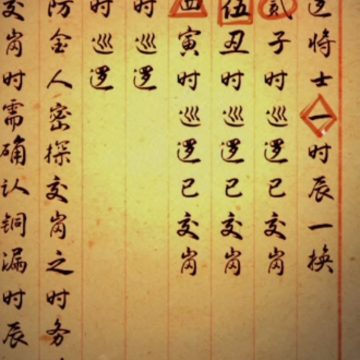 逻将士一时辰一换
贰子时巡逻已交岗
伍丑时巡逻已交岗
四寅时巡逻已交岗
时巡逻
时巡逻
防金人密探交岗之时务
交岗时需确认铜漏时辰